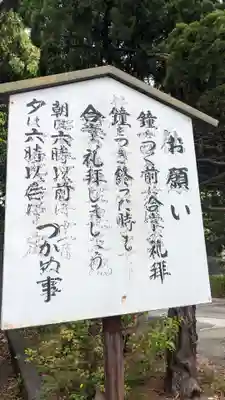 お願い
鐘をつく前に合掌礼拝
お鐘をつき終った時も
合掌礼拝しましょう
朝は六時以前は
夕は六時以后は
つかぬ事